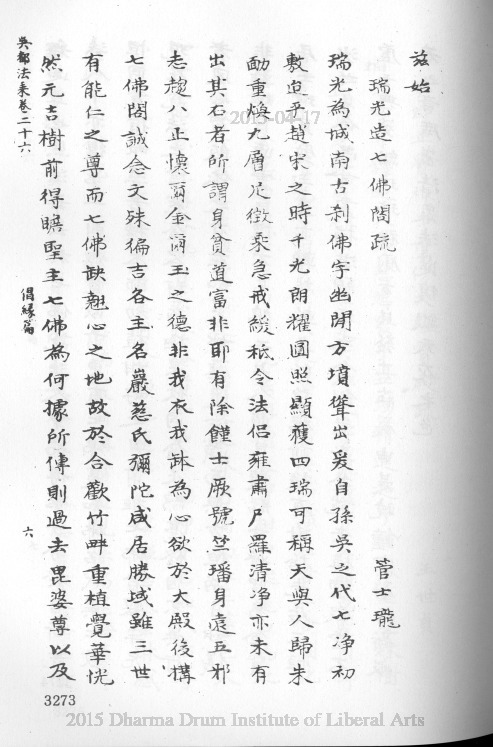 茲始
瑞光造七佛閣疏
管士瓏
瑞光為城南古刹佛宇幽閒方墳聳出爰自孫吳之代七淨初
敷迨乎趙宋之時千光朗耀圓照顯獲四瑞可稱天與人歸朱
勔重煥九層足徵乘急戒緩秪令法侶雍肅尸羅清淨亦未有
出其右者所謂身貧道富非耶有除饉士厥號竺璠身遠五邪
志趍八正懷爾金爾玉之德非我衣我鉢為心欲於大殿後構
七佛閣誠念文殊徧吉各主名嚴慈氏彌陀咸居勝域雖三世
有能仁之尊而七佛缺翹心之地故於合歡竹畔重植覺華恍
然元吉樹前得瞻聖主七佛為何據所傳則過去毘婆尊以及
吳都法乘卷二十六
倡緣篇
六
3273
2015-04-17
2015 Dharma Drum Institute of Liberal Arts